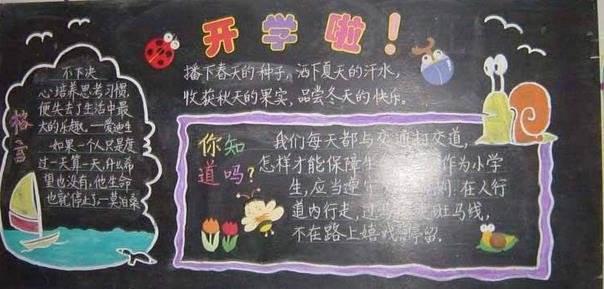 开学啦！
播下春天的种子，洒下夏天的汗水，
收获秋天的果实，品尝冬天的快乐。
格言
不下决
心培养思考习惯，
便失去了生活中最
大的乐趣。—爱迪生
如果一个人只是度
过一天算一天，什么希
望也没有，他生命
也就停止了—莫泊桑
你知
道吗？
我们每天都与交通打交道，
怎样才能保障生 作为小学
生，应当遵 则：在人行
道内行走，过 斑马线，
不在路上嬉戏 停留。